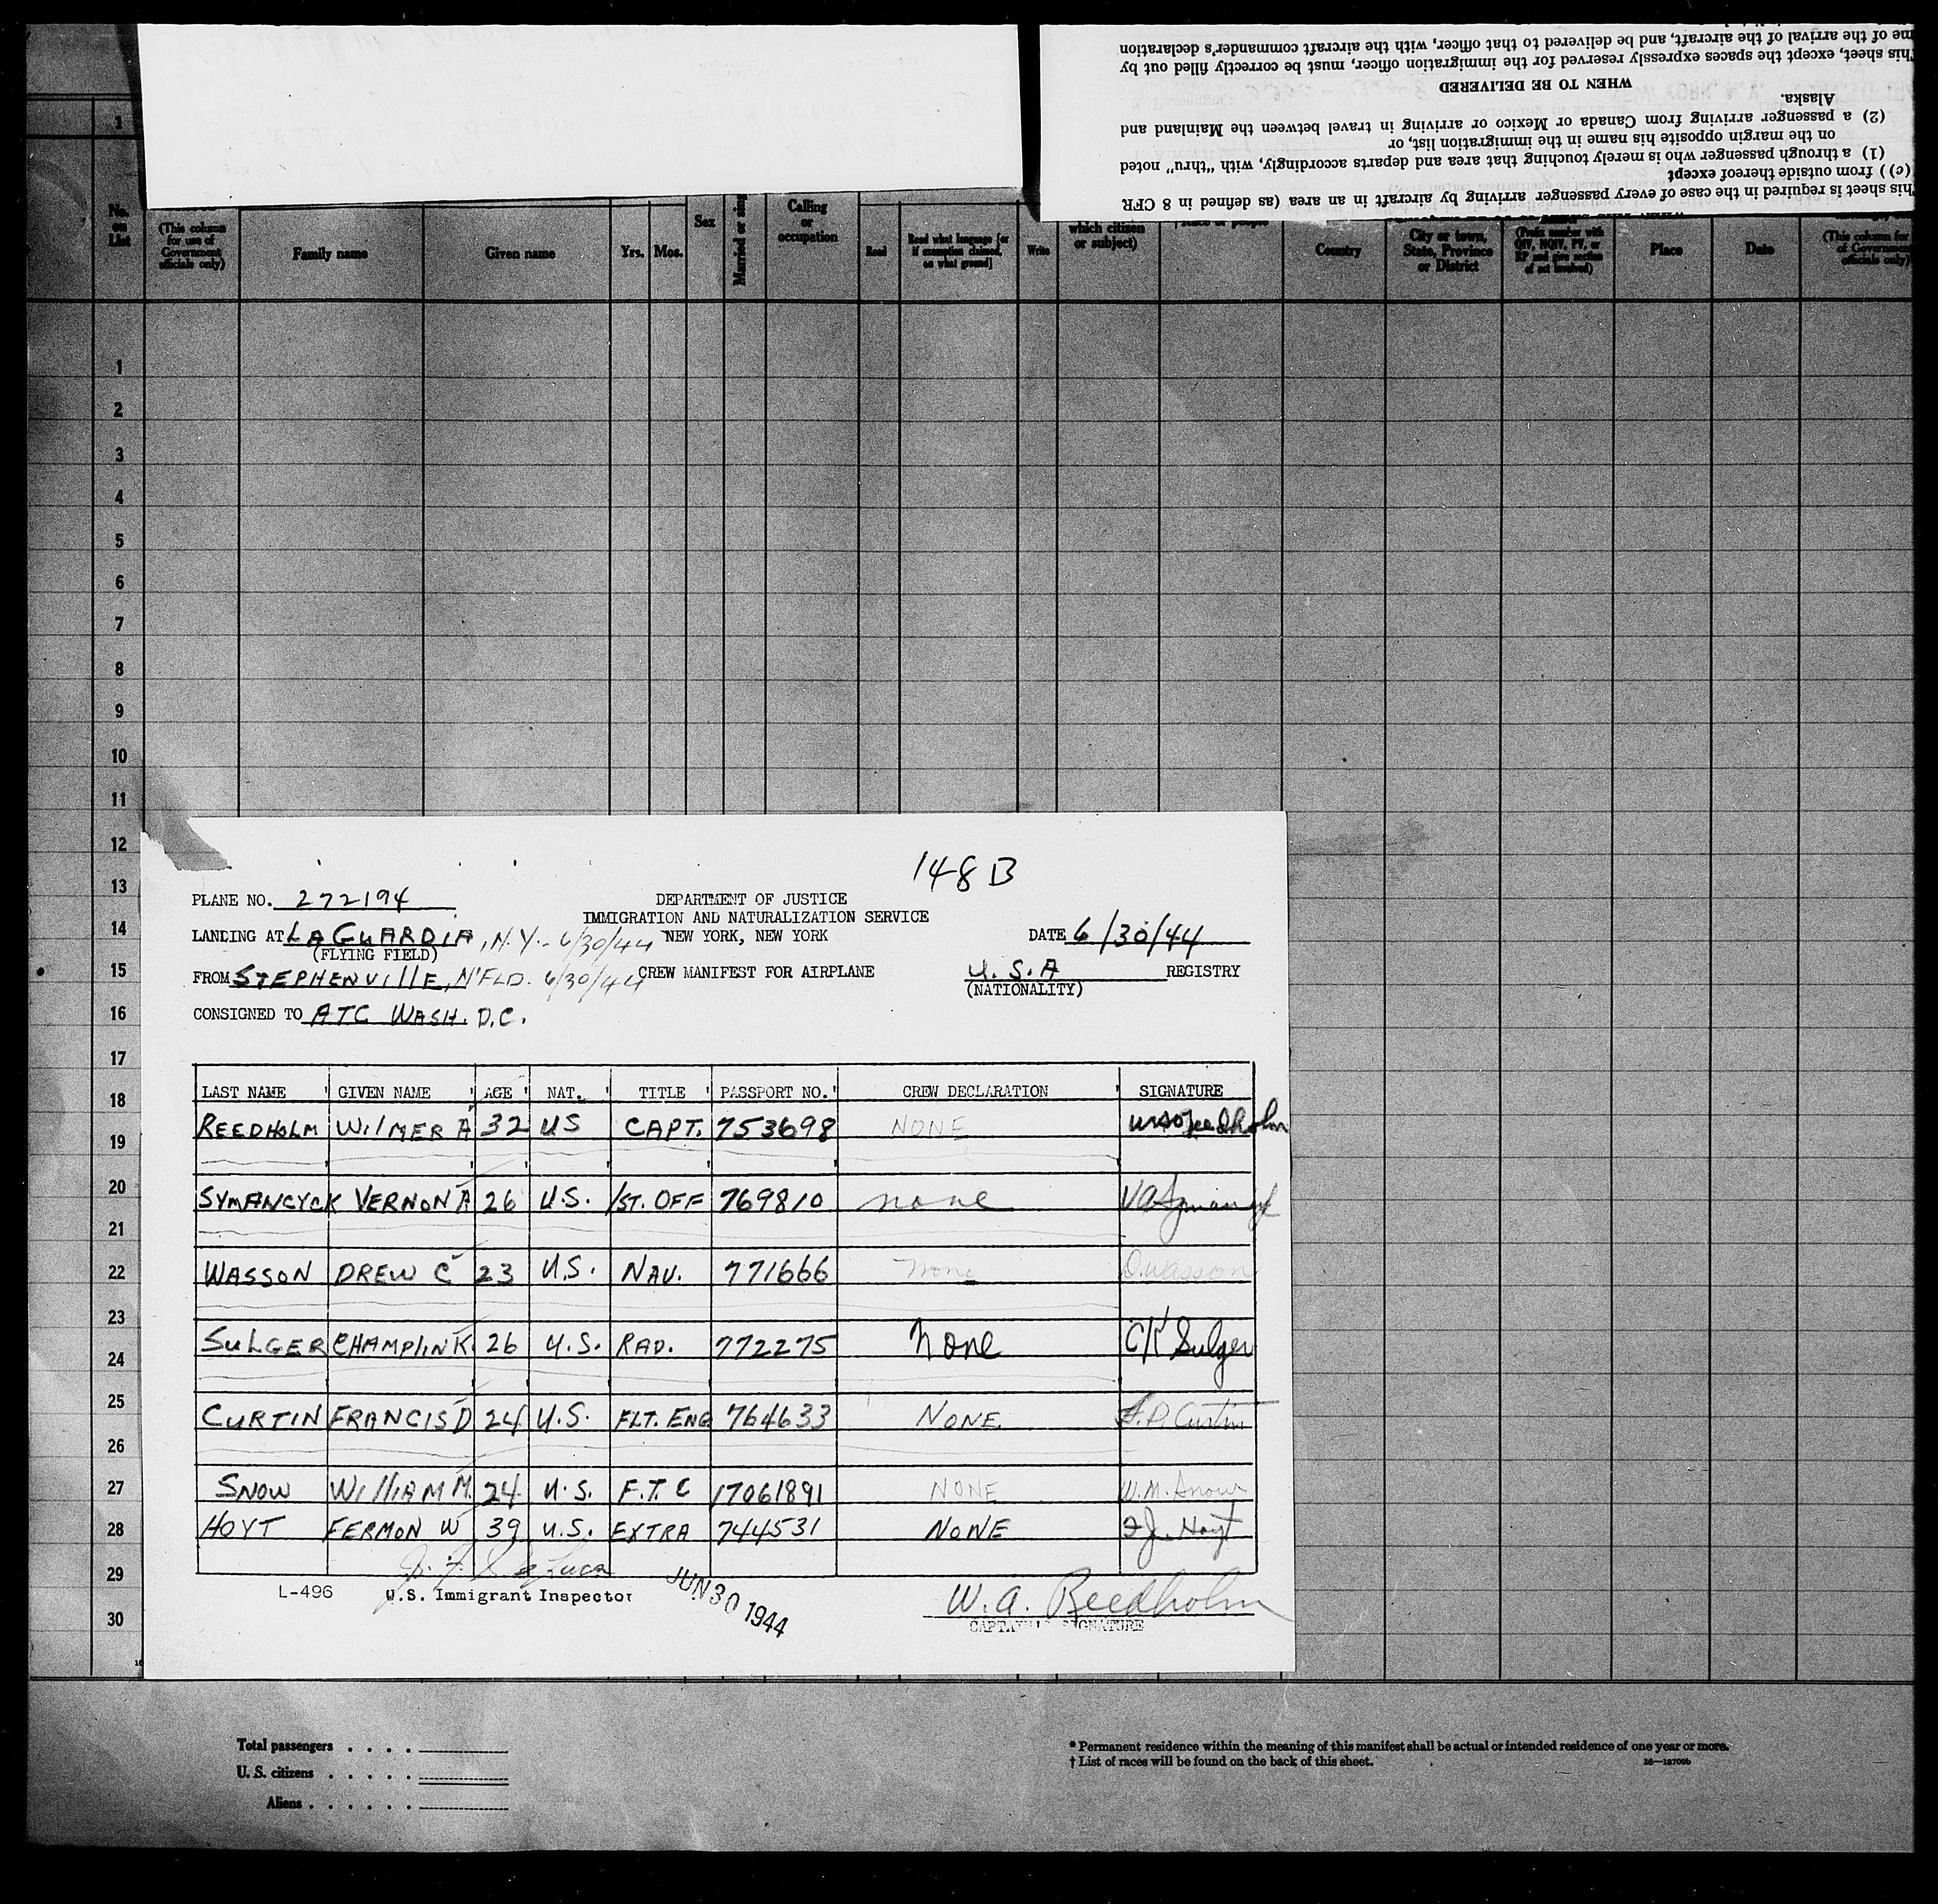 me of the arrival of the aircraft, and be delivered to that officer, with the aircraft commander's declaration
This sheet, except the spaces expressly reserved for the immigration officer, must be correctly filled out by
WHEN TO BE DELIVERED
Alaska.
(2) a passenger arriving from Canada or Mexico or arriving in travel between the Mainland and
on the margin opposite his name in the immigration list, or
(1) a through passenger who is merely touching that area and departs accordingly, with "thru" noted
(c)) from outside thereof except
This sheet is required in the case of every passenger arriving by aircraft in an area (as defined in 8 CFR
1
No. on List
(This column for use of Government officials only)
Family name
Given name
Yrs.
Mos.
Sex
Married or sing
Calling or occupation
Read
Read what language [or if exemption claimed, on what ground]
Write
which citizen or subject)
Country
City or town, State, Province or District
(Prefix number with QIV, NQIV, PV, or RP and give section of act involved)
Place
Date
(This column for of Government officials only)
1
2
3
4
5
6
7
8
9
10
11
12
13
14
15
16
17
18
19
20
21
22
23
24
25
26
27
28
29
30
148 B
PLANE NO. 272194
DEPARTMENT OF JUSTICE
IMMIGRATION AND NATURALIZATION SERVICE
LANDING AT LA GUARDIA, N.Y. - 6/30/44 NEW YORK, NEW YORK DATE 6/30/44
(FLYING FIELD)
FROM STEPHENVILLE, N'FLD. 6/30/44 CREW MANIFEST FOR AIRPLANE U.S.A REGISTRY
(NATIONALITY)
CONSIGNED TO ATC WASH. D.C.
LAST NAME GIVEN NAME AGE NAT. TITLE PASSPORT NO. CREW DECLARATION SIGNATURE
REEDHOLM WILMER A 32 US CAPT. 753698 NONE WA Reedholm
SYMANCYCK VERNON A 26 U.S. 1ST. OFF 769810 none VA Symancyk
WASSON DREW C 23 U.S. NAV. 771666 none D. Wasson
SULGER CHAMPLIN K. 26 U.S. RAD. 772275 None CK Sulger
CURTIN FRANCIS D 24 U.S. FLT. ENG 764633 NONE F.D. Curtin
SNOW WILLIAM M. 24 U.S. F.T.C 17061891 NONE W.M. Snow
HOYT FERMON W 39 U.S. EXTRA 744531 NONE Hoyt
L-496 U.S. Immigrant Inspector JUN 30 1944 W. A. Reedholm
CAPTAIN'S SIGNATURE
Total passengers . . . .
U. S. citizens . . . . .
Aliens . . . . . .
* Permanent residence within the meaning of this manifest shall be actual or intended residence of one year or more.
† List of races will be found on the back of this sheet.